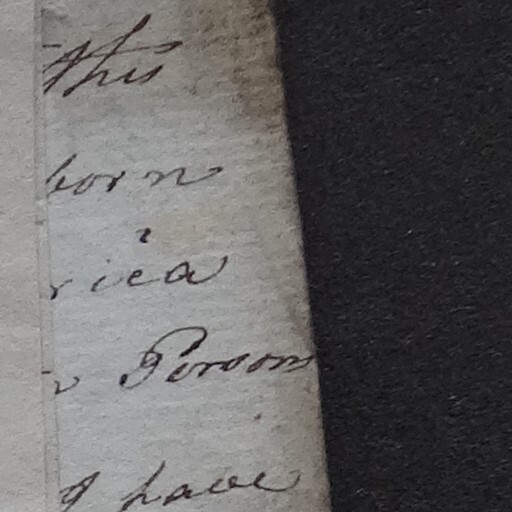 this
born
rica
Persons
I have